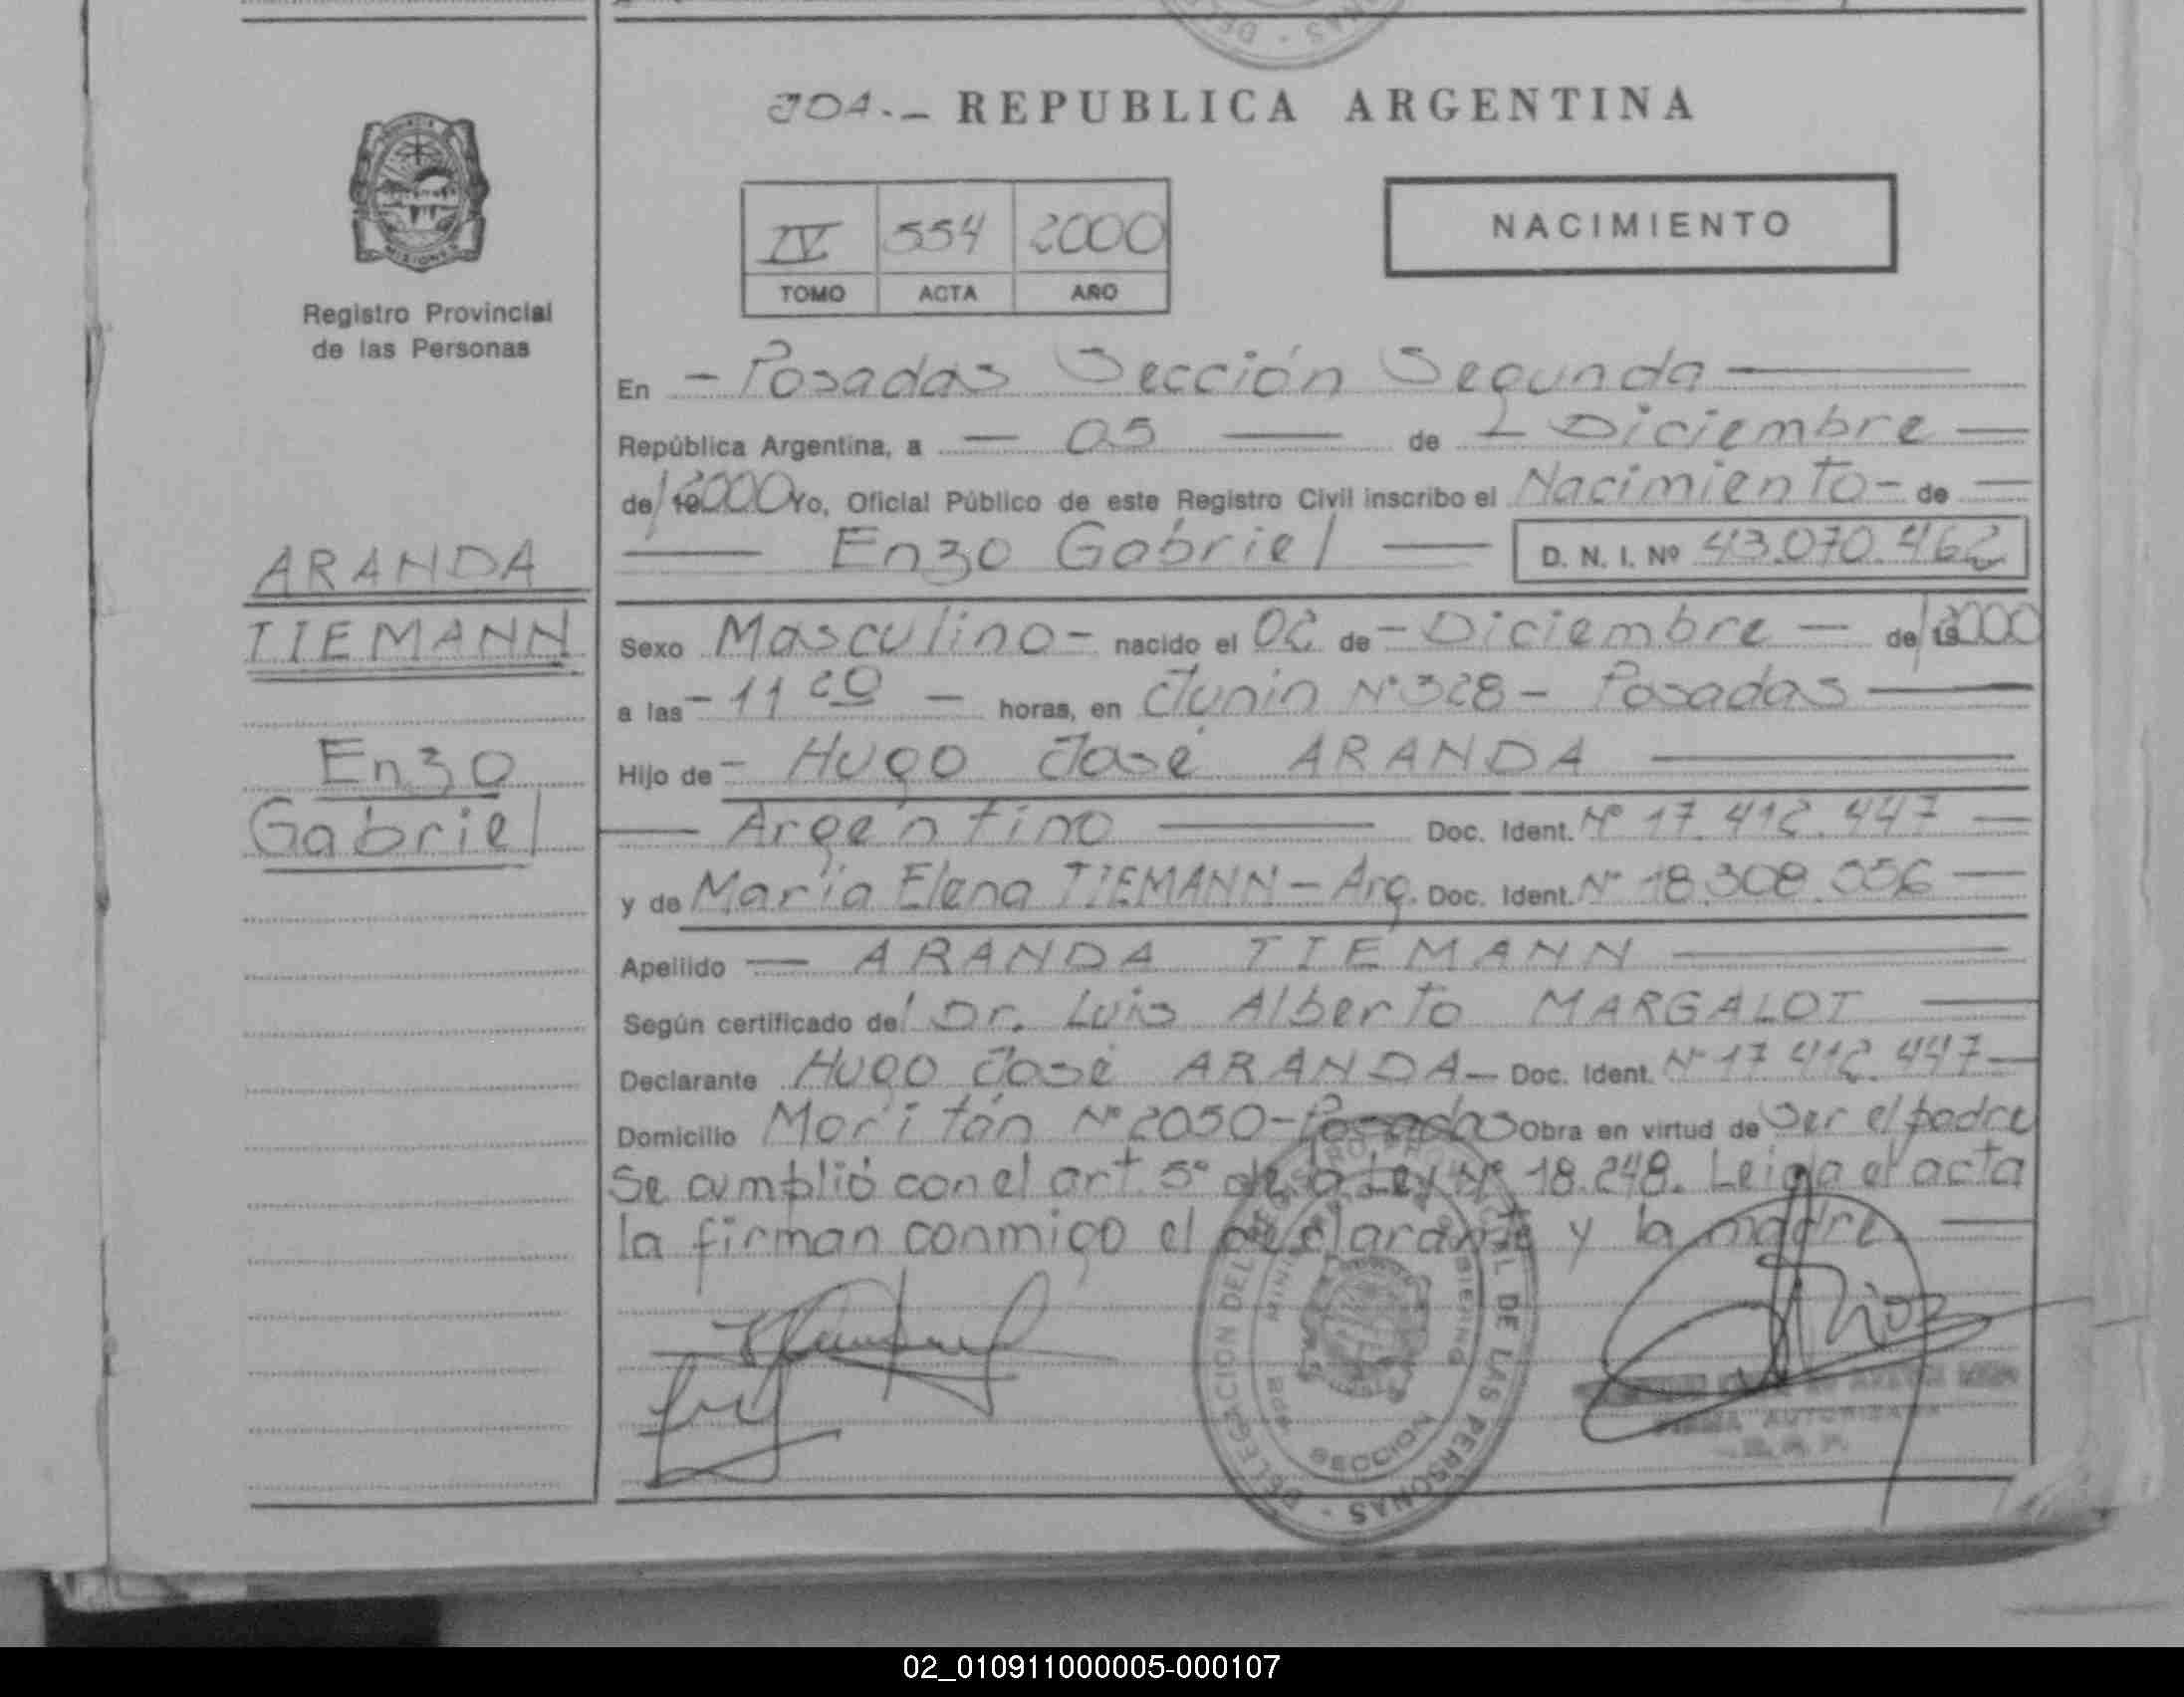 REPUBLICA ARGENTINA
IV 554 2000
TOMO ACTA AÑO
NACIMIENTO
Registro Provincial
de las Personas
ARANDA
TIEMANN
Enzo
Gabriel
En - Posadas Sección Segunda
República Argentina, a - 05 - de - Diciembre -
de 19 2000 Yo, Oficial Público de este Registro Civil inscribo el Nacimiento - de -
Enzo Gabriel - D. N. I. Nº 43.070.462
Sexo Masculino - nacido el 02 de - Diciembre - de 19 2000
a las - 11 20 - horas, en Junin Nº 328 - Posadas
Hijo de - Hugo José ARANDA
Argentino - Doc. Ident. Nº 17.412.447 -
y de María Elena TIEMANN - Arg. Doc. Ident. Nº 18.308.556 -
Apellido - ARANDA TIEMANN
Según certificado del Dr. Luis Alberto MARGALOT
Declarante Hugo José ARANDA - Doc. Ident. Nº 17.412.447 -
Domicilio Moritán Nº 2050 - Posadas Obra en virtud de Ser el padre
Se cumplió con el art. 5º de la Ley Nº 18.248. Leida el acta
la firman conmigo el declarante y la madre
DELEGACION DEL REGISTRO PROVINCIAL DE LAS PERSONAS
SECCION
FIRMA AUTORIZADA
02_010911000005-000107